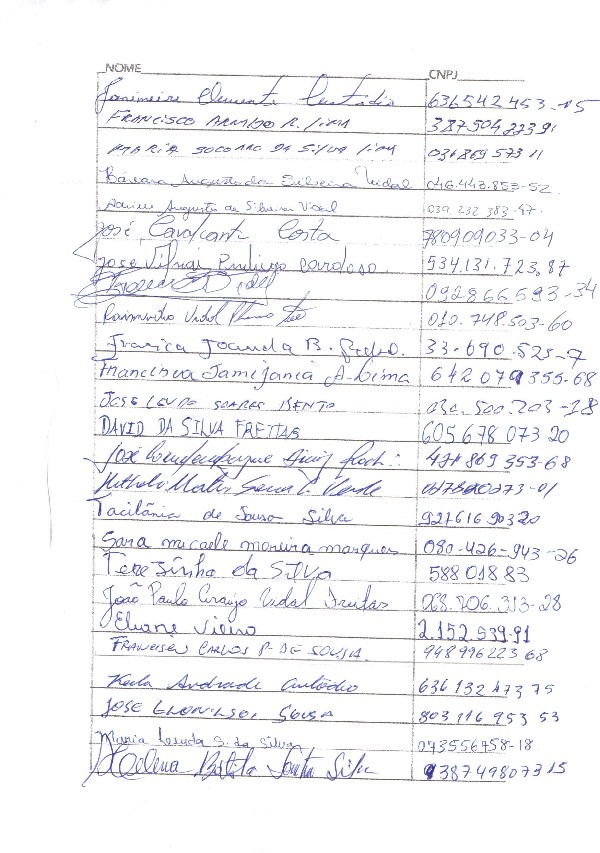 NOME CNPJ
Clemente Custódio 636542453-15
FRANCISCO R. LIMA 387504273 91
MARIA SOCORRO DA SILVA LIMA 031869573 11
Bárbara Augusta da Silveira Vidal 046.443.853-52
Augusta da Silveira Vidal 039.232 383-47
José Cavalcante Costa 780909033-04
José Cardoso 534.131.723,87
092866693-34
Raimundo Vidal 010.748.503-60
B. 33-690.525-7
Francisca Jamijania A-Lima 642 079 355-68
JOSE SOARES BENTO 500.203-18
DAVID DA SILVA FREITAS 605 678 073 20
José 471 869 353-68
Tacilânia de Sousa Silva 927616 90320
Sara micaele moreira marques 080-426-943-26
Terezinha da Silva 588 018 83
João Paulo Araújo Vidal Freitas 068.206.313-28
Eliane Vieira 2.152.539.91
CARLOS P- DE SOUSA. 948 996223 68
Karla Andrade Custódio 636 132 473 75
JOSE SOUSA 803 116 953 53
Maria S. da Silva 043556758-18
Helena Batista Silva 93874980 73 15